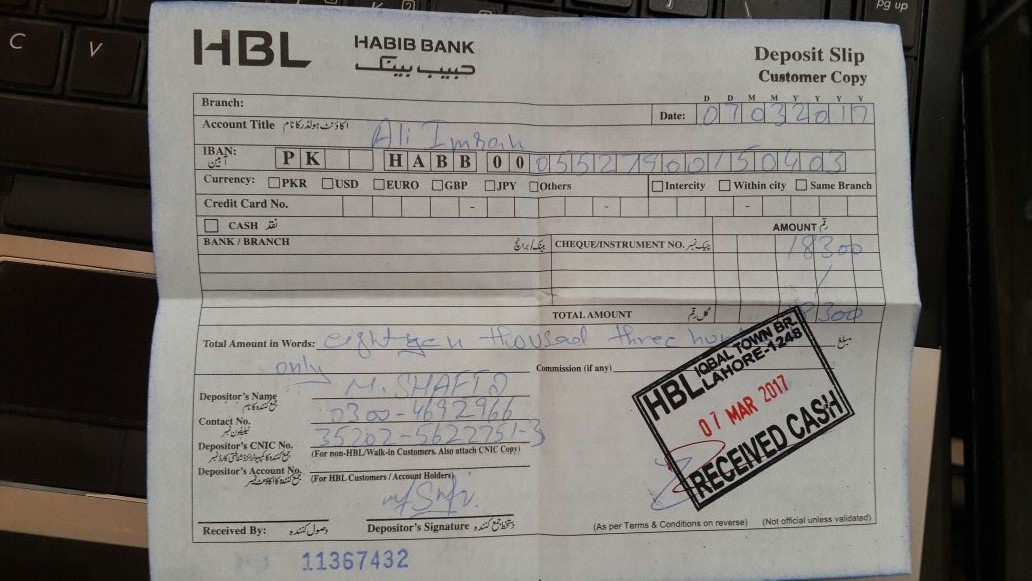 C V pg up
HBL HABIB BANK
حبیب بینک
Deposit Slip
Customer Copy
Branch:
D D M M Y Y Y Y
Date: 07032017
Account Title اکاؤنٹ ہولڈر کا نام Ali Imran
IBAN: PK HABB 00 0552790015 0403
آئبین
Currency: PKR USD EURO GBP JPY Others Intercity Within city Same Branch
Credit Card No. - - -
CASH نقد AMOUNT رقم
BANK / BRANCH بینک/برانچ CHEQUE/INSTRUMENT NO. چیک نمبر 18300
TOTAL AMOUNT کل رقم 18300
Total Amount in Words: eighteen thousad three hun مبلغ
only Commission (if any)
Depositor's Name M. SHAFIQ
جمع کنندہ کا نام
Contact No. 0300-4692966
ٹیلیفون نمبر
Depositor's CNIC No. 35202-5622751-3
جمع کنندہ کا کمپیوٹرائزڈ شناختی کارڈ نمبر (For non-HBL/Walk-in Customers. Also attach CNIC Copy)
Depositor's Account No. (For HBL Customers / Account Holders)
جمع کنندہ کا اکاؤنٹ نمبر
HBL IQBAL TOWN BR.
LAHORE-1248
07 MAR 2017
RECEIVED CASH
Received By: وصول کنندہ Depositor's Signature دستخط جمع کنندہ (As per Terms & Conditions on reverse) (Not official unless validated)
11367432